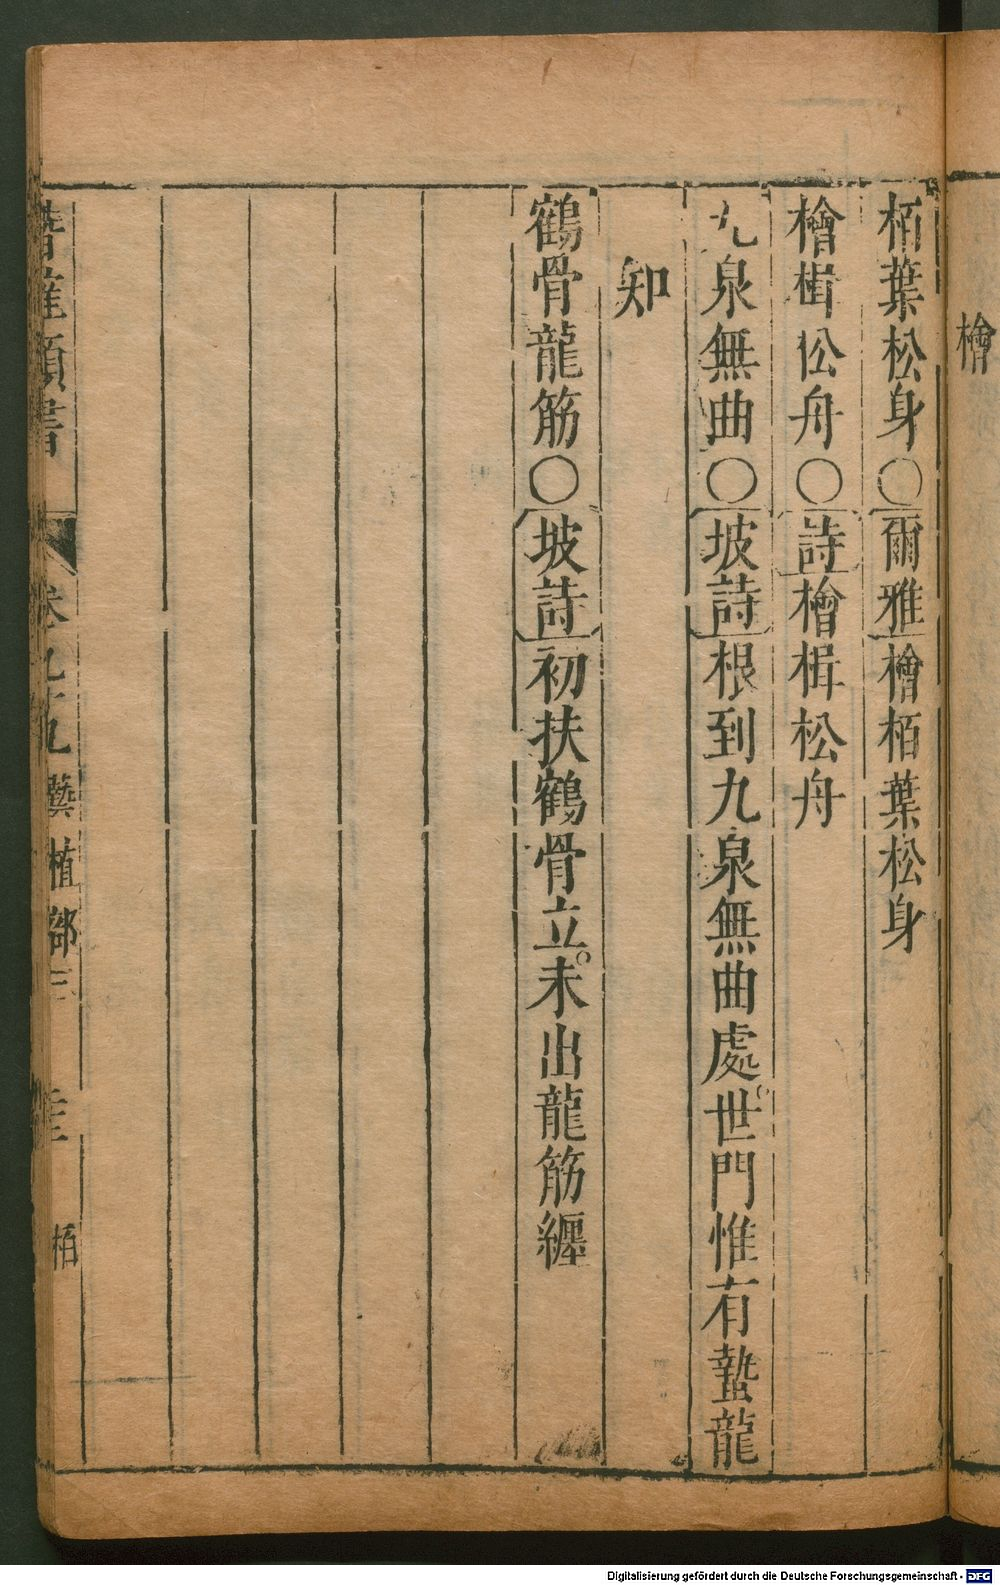 檜
栢葉松身〇爾雅檜栢葉松身
檜楫㕣舟〇詩檜楫松舟
九泉無曲〇坡詩根到九泉無曲處。世門惟有蟄龍
知
鶴骨龍筋〇坡詩初扶鶴骨立。未出龍筋纏
類書
卷九十九 植部三 栢
Digitalisierung gefördert durch die Deutsche Forschungsgemeinschaft - DFG